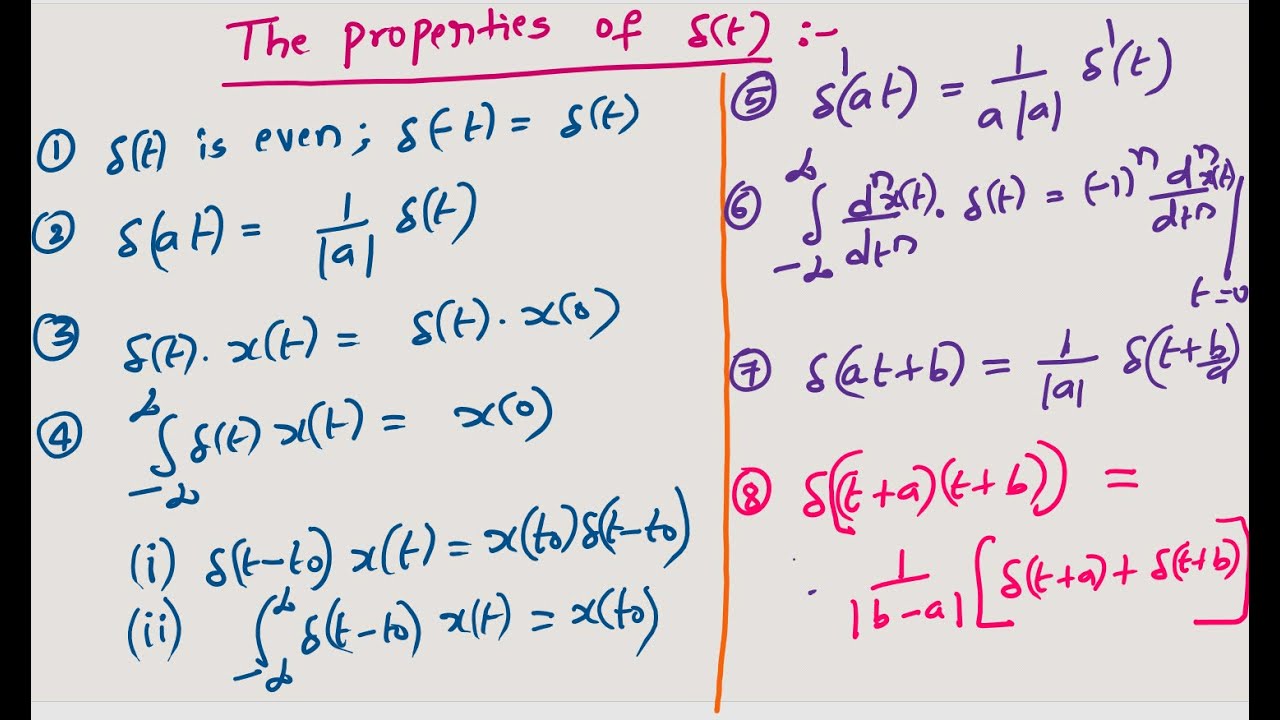 The properties of δ(t) :-
① δ(t) is even; δ(-t) = δ(t)
② δ(at) = 1/|a| δ(t)
③ δ(t). x(t) = δ(t). x(0)
④ ∫_{-∞}^{∞} δ(t) x(t) = x(0)
(i) δ(t-t0) x(t) = x(t0) δ(t-t0)
(ii) ∫_{-∞}^{∞} δ(t-t0) x(t) = x(t0)
⑤ δ'(at) = 1/(a|a|) δ'(t)
⑥ ∫_{-∞}^{∞} d^n x(t)/dt^n . δ(t) = (-1)^n d^n x(t)/dt^n |_{t=0}
⑦ δ(at+b) = 1/|a| δ(t+b/a)
⑧ δ((t+a)(t+b)) =
1/|b-a| [δ(t+a) + δ(t+b)]